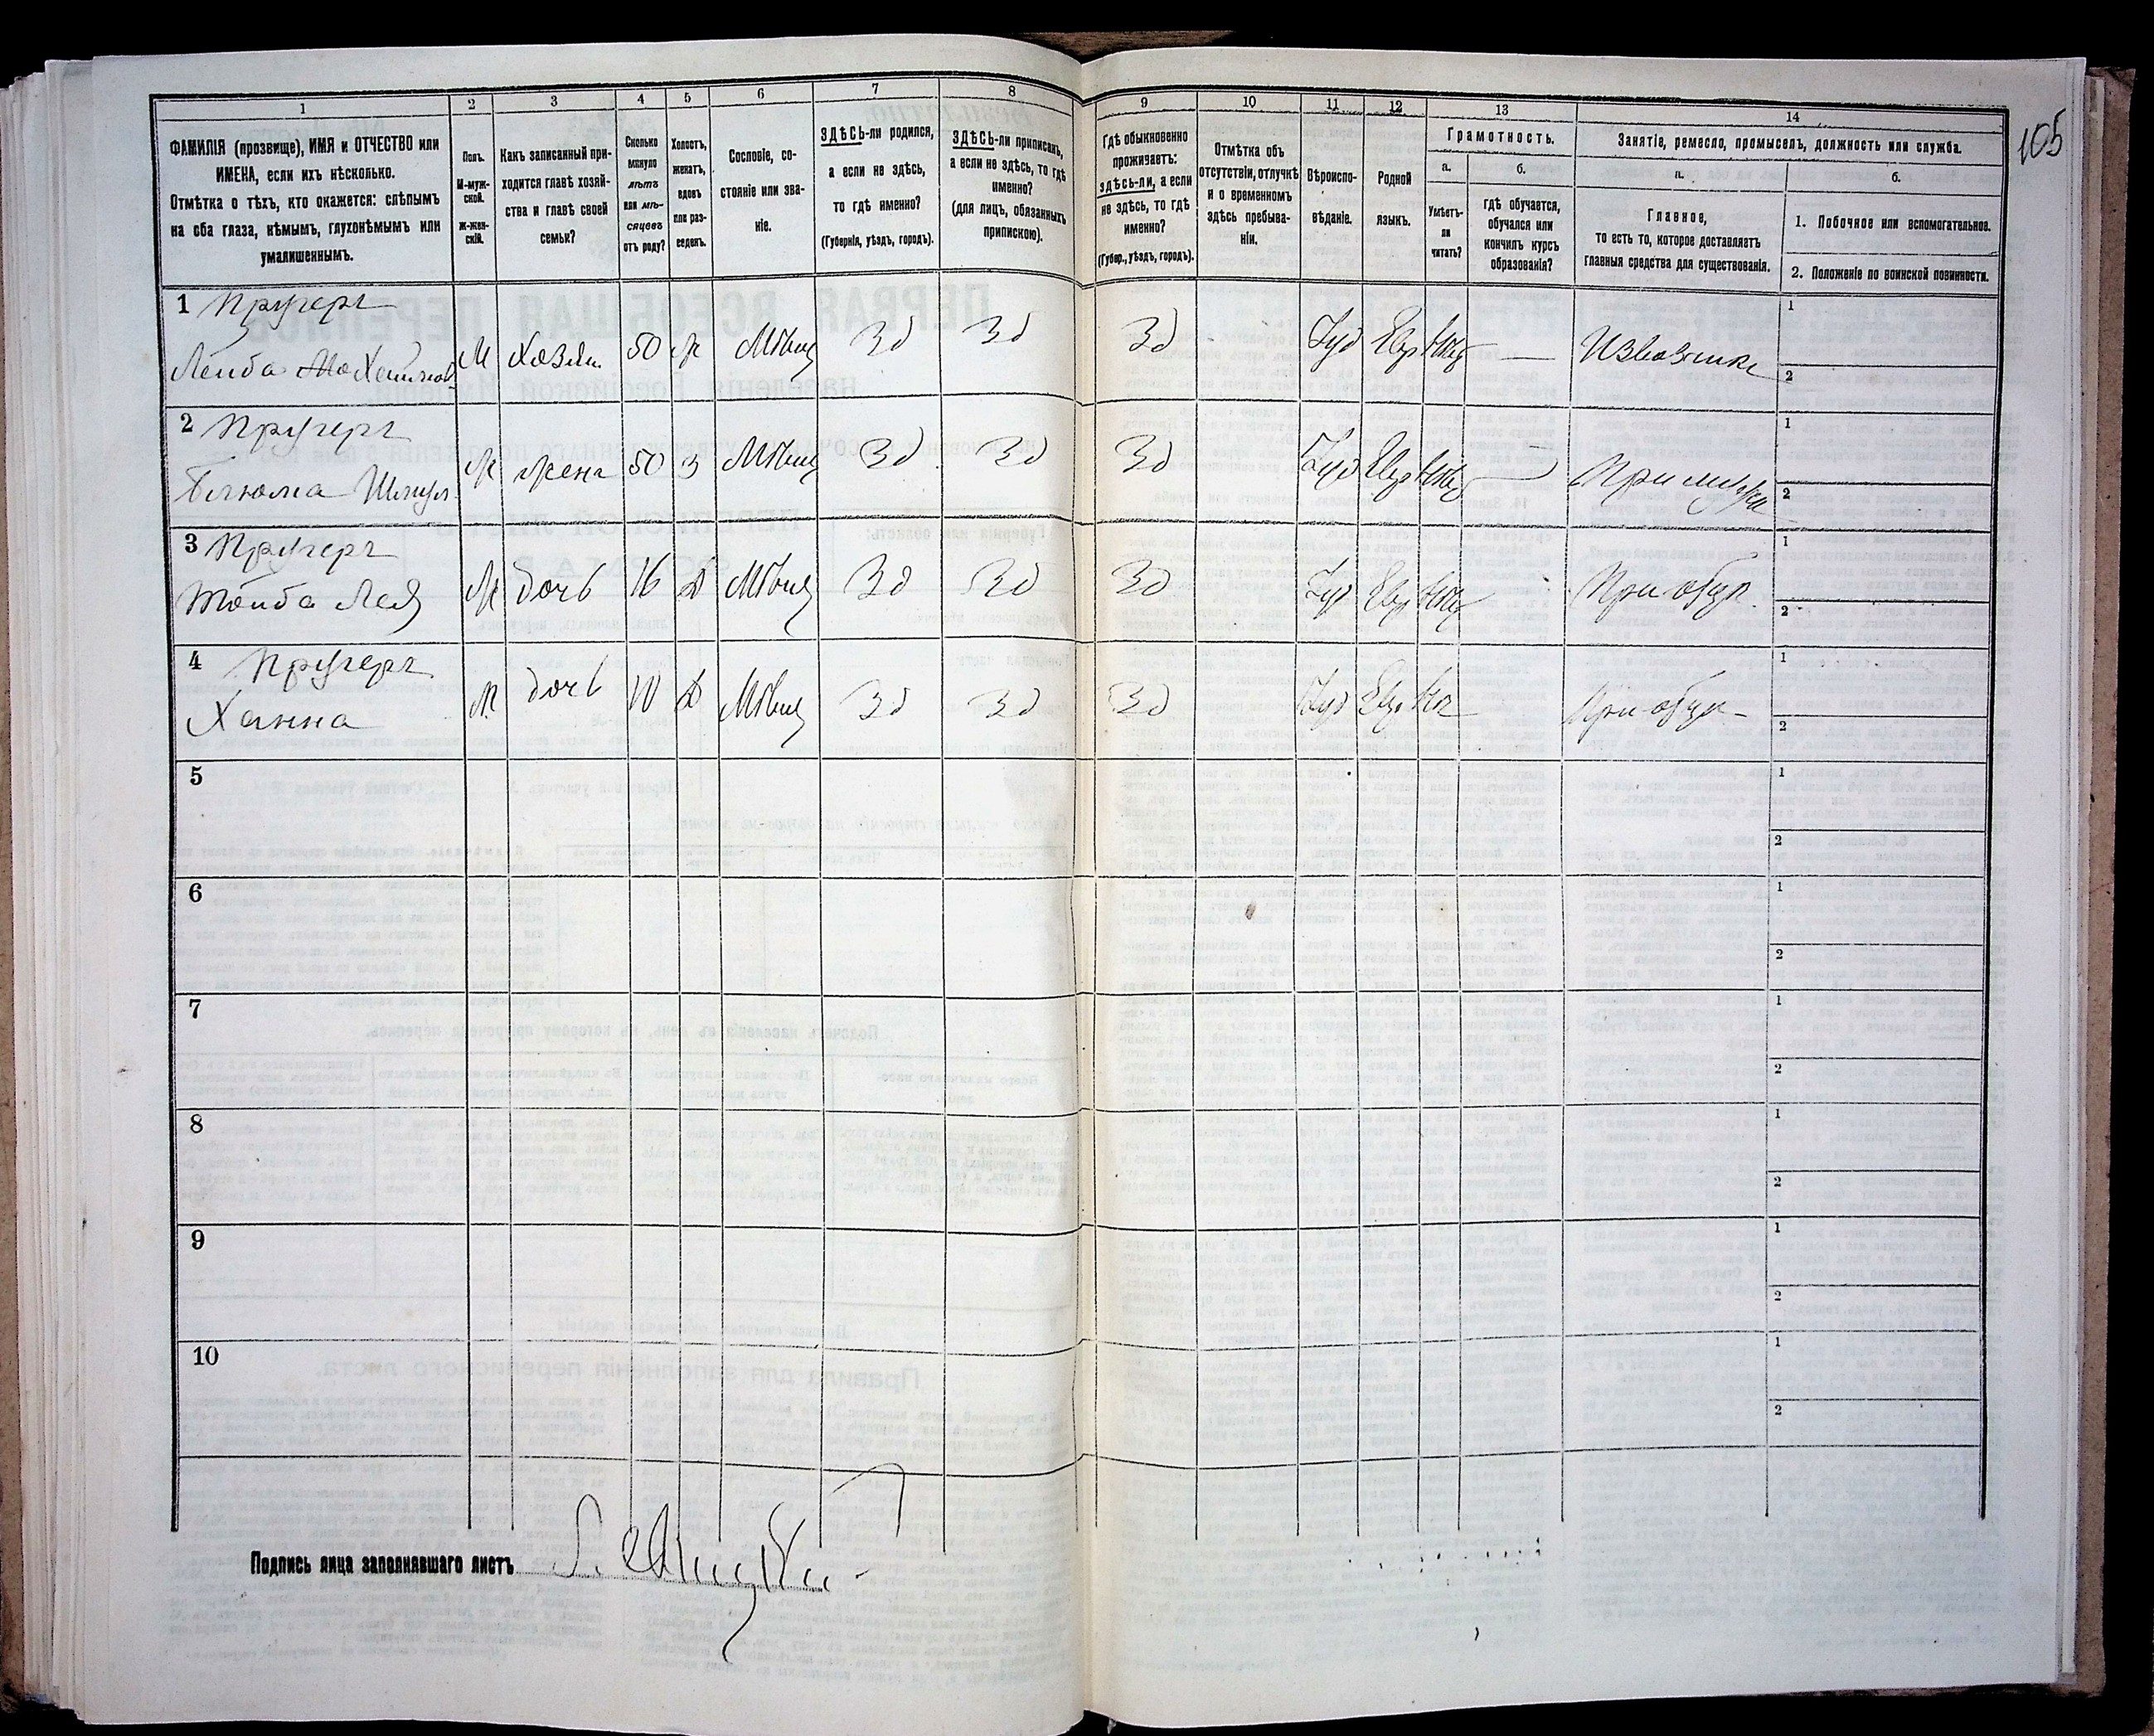 105
1 2 3 4 5 6 7 8 9 10 11 12 13 14
ФАМИЛІЯ (прозвище), ИМЯ и ОТЧЕСТВО или
ИМЕНА, если ихъ нѣсколько.
Отмѣтка о тѣхъ, кто окажется: слѣпымъ
на оба глаза, нѣмымъ, глухонѣмымъ или
умалишеннымъ.
Полъ.
М-муж-
ской.
Ж-жен-
скій.
Какъ записанный при-
ходится главѣ хозяй-
ства и главѣ своей
семьи?
Сколько
минуло
лѣтъ
или мѣ-
сяцевъ
отъ роду?
Холостъ,
женатъ,
вдовъ
или раз-
веденъ.
Сословіе, со-
стояніе или зва-
ніе.
ЗДѢСЬ-ли родился,
а если не здѣсь,
то гдѣ именно?
(Губернія, уѣздъ, городъ).
ЗДѢСЬ-ли приписанъ,
а если не здѣсь, то гдѣ
именно?
(для лицъ, обязанныхъ
припискою).
Гдѣ обыкновенно
проживаетъ:
здѣсь-ли, а если
не здѣсь, то гдѣ
именно?
(Губер., уѣздъ, городъ).
Отмѣтка объ
отсутствіи, отлучкѣ
и о временномъ
здѣсь пребыва-
ніи.
Вѣроиспо-
вѣданіе.
Родной
языкъ.
Грамотность.
а.
Умѣетъ-
ли
читать?
б.
гдѣ обучается,
обучался или
кончилъ курсъ
образованія?
Занятіе, ремесло, промыселъ, должность или служба.
а.
Главное,
то есть то, которое доставляетъ
главныя средства для существованія.
б.
1. Побочное или вспомогательное.
2. Положеніе по воинской повинности.
1 Пругеръ
Лейба М Хозяин 50 ж Мѣщ Зд Зд Зд Іуд Евр Нѣт — Извозчик 1
2
2 Пругеръ
Ж жена 50 З Мѣщ Зд Зд Зд Іуд Евр Нѣт — При муже 1
2
3 Пругеръ
Тойба Лея Ж дочь 16 Д Мѣщ Зд Зд Зд Іуд Евр Нѣт 1
2
4 Пругеръ
Ханна Ж дочь 10 Д Мѣщ Зд Зд Зд Іуд Евр 1
2
5 1
2
6 1
2
7 1
2
8 1
2
9 1
2
10 1
2
Подпись лица заполнявшаго листъ